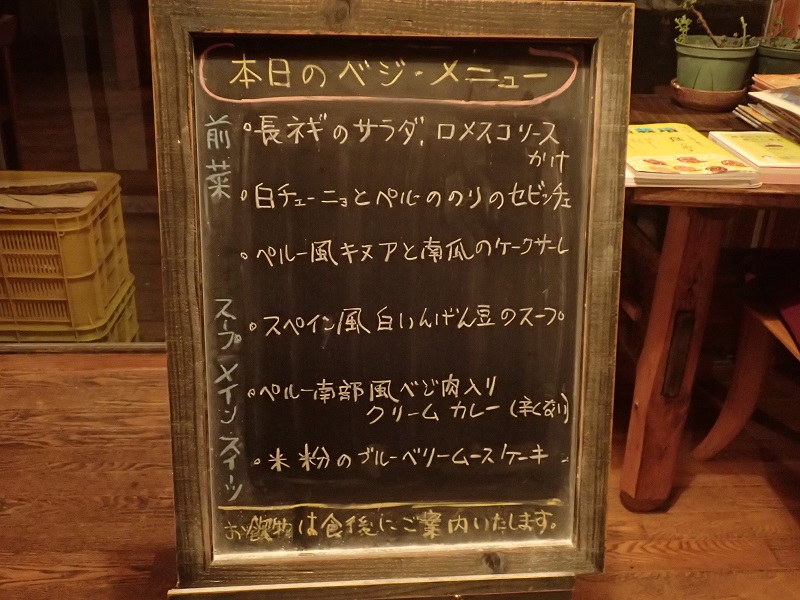 本日のベジ・メニュー
前菜
・長ネギのサラダ、ロメスコソース
かけ
・白チューニョとペルーののりのセビッチェ
・ペルー風キヌアと南瓜のケークサーレ
スープ
・スペイン風白いんげん豆のスープ
メイン・スイーツ
・ペルー南部風ベジ肉入り
クリームカレー(辛くない)
・米粉のブルーベリームースケーキ
お飲物は食後にご案内いたします。